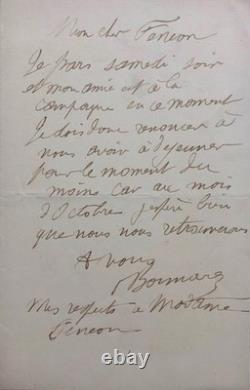 Mon cher Feneon
Je pars samedi soir
et mon amie est à la
campagne en ce moment
Je dois donc renoncer à
vous avoir à déjeuner
pour le moment du
moins car au mois
d'Octobre j'espère bien
que nous nous retrouverons
A vous
Bonnard
Mes respects à Madame
Feneon